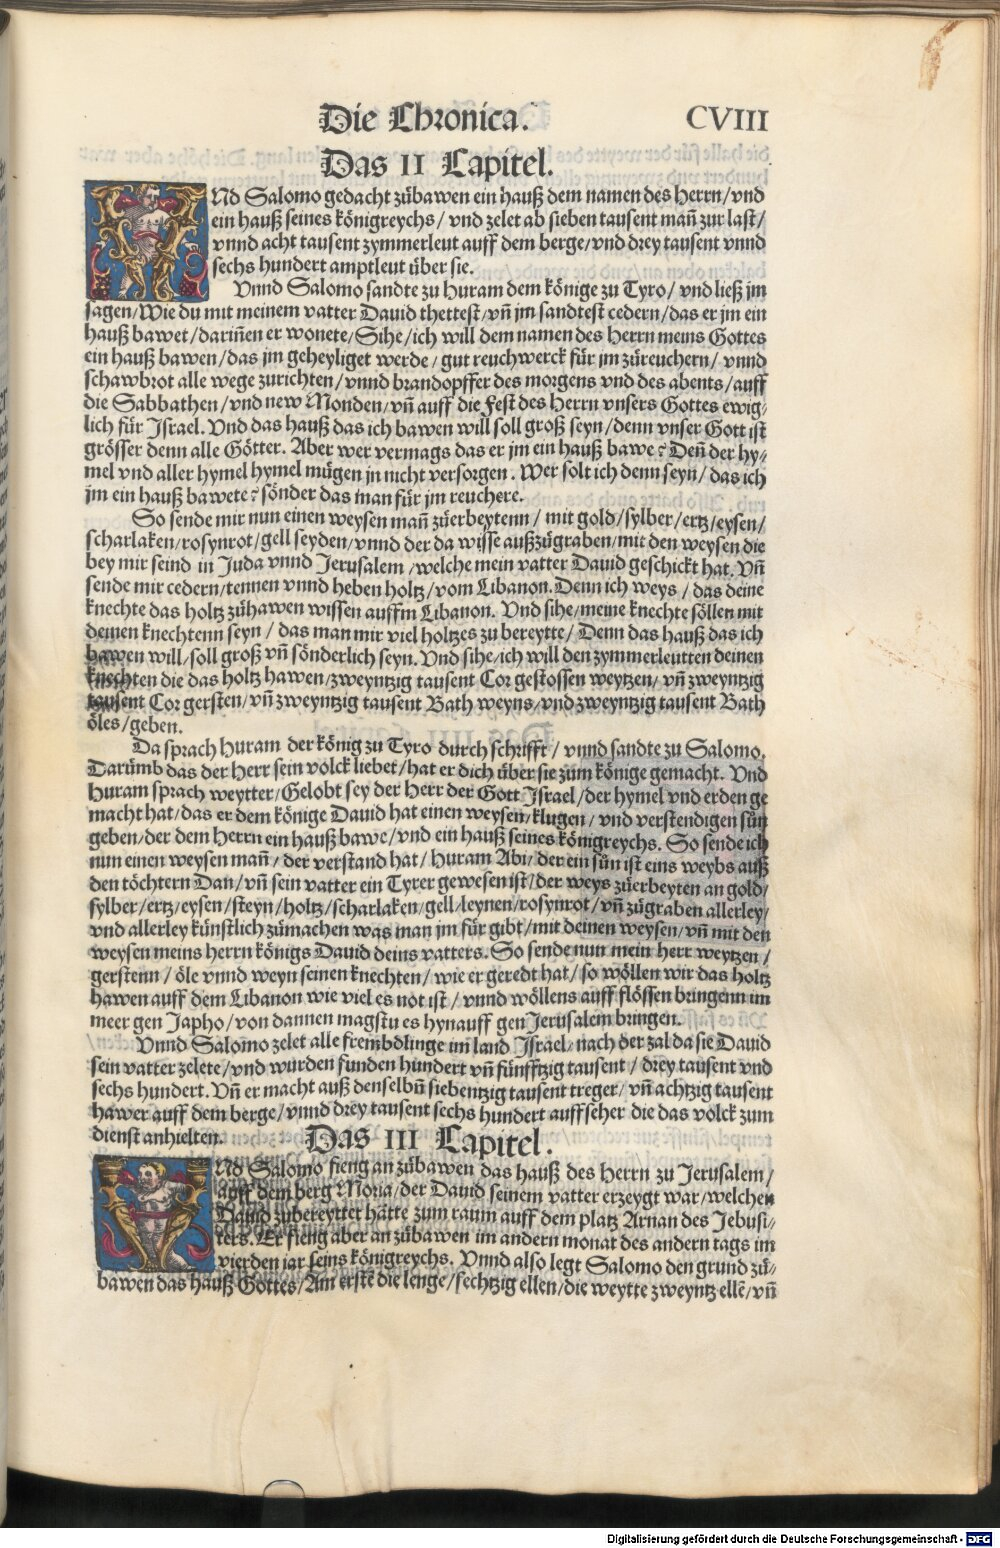 Die Chronica. CVIII
Das II Capitel.
VNd Salomo gedacht zůbawen ein hauß dem namen des Herrn/vnd
ein hauß seines königreychs/ vnd zelet ab sieben tausent mañ zur last/
vnnd acht tausent zymmerleut auff dem berge/vnd drey tausent vnnd
sechs hundert amptleut über sie.
Vnnd Salomo sandte zu Huram dem könige zu Tyro/ vnd ließ jm
sagen/Wie du mit meinem vatter Dauid thettest/vñ jm sandtest cedern/das er jm ein
hauß bawet/dariñen er wonete/Sihe/ich will dem namen des Herrn meins Gottes
ein hauß bawen/das jm geheyliget werde/ gut reuchwerck für jm zůreuchern/ vnnd
schawbrot alle wege zurichten/vnnd brandopffer des morgens vnd des abents/auff
die Sabbathen/vnd new Monden/vñ auff die Fest des Herrn vnsers Gottes ewig-
lich für Israel. Vnd das hauß das ich bawen will soll groß seyn/denn vnser Gott ist
grösser denn alle Götter. Aber wer vermags das er jm ein hauß bawe? Deñ der hy-
mel vnd aller hymel hymel mügen jn nicht versorgen. Wer solt ich denn seyn/das ich
jm ein hauß bawete? sönder das man für jm reuchere.
So sende mir nun einen weysen mañ zůerbeytenn/ mit gold/sylber/ertz/eysen/
scharlaken/rosynrot/gell seyden/vnnd der da wisse außzůgraben/mit den weysen die
bey mir seind in Juda vnnd Jerusalem/welche mein vatter Dauid geschickt hat. Vñ
sende mir cedern/tennen vnnd heben holtz/vom Libanon. Denn ich weys/ das deine
knechte das holtz zůhawen wissen auffm Libanon. Vnd sihe/meine knechte söllen mit
deinen knechtenn seyn/ das man mir viel holtzes zu bereytte/Denn das hauß das ich
bawen will/soll groß vñ sönderlich seyn. Vnd sihe/ich will den zymmerleutten deinen
knechten die das holtz hawen/zweyntzig tausent Cor gestossen weytzen/ vñ zweyntzig
tausent Cor gersten/vñ zweyntzig tausent Bath weyns/vnd zweyntzig tausent Bath
öles/geben.
Da sprach Huram der könig zu Tyro durch schrifft/ vnnd sandte zu Salomo.
Darümb das der Herr sein volck liebet/hat er dich über sie zum könige gemacht. Vnd
Huram sprach weytter/Gelobt sey der Herr der Gott Israel/der hymel vnd erden ge
macht hat/das er dem könige Dauid hat einen weysen/klugen/ vnd verstendigen sün
geben/der dem Herrn ein hauß bawe/vnd ein hauß seines königreychs. So sende ich
nun einen weysen mañ/ der verstand hat/ Huram Abi/der ein sün ist eins weybs auß
den töchtern Dan/vñ sein vatter ein Tyrer gewesen ist/der weys zůerbeyten an gold/
sylber/ertz/eysen/steyn/holtz/scharlaken/gell/leynen/rosynrot/vñ zůgraben allerley/
vnd allerley künstlich zůmachen was man jm für gibt/mit deinen weysen/vñ mit den
weysen meins herrn königs Dauid deins vatters. So sende nun mein herr weytzen/
gerstenn/öle vnnd weyn seinen knechten/ wie er geredt hat/so wöllen wir das holtz
hawen auff dem Libanon wie viel es not ist/ vnnd wöllens auff flössen bringenn im
meer gen Japho/von dannen magstu es hynauff gen Jerusalem bringen.
Vnnd Salomo zelet alle frembdlinge im land Israel/nach der zal da sie Dauid
sein vatter zelete/vnd wurden funden hundert vñ fünfftzig tausent/ drey tausent vnd
sechs hundert. Vñ er macht auß denselbñ siebentzig tausent treger/ vñ achtzig tausent
hawer auff dem berge/vnnd drey tausent sechs hundert auffseher die das volck zum
dienst anhielten.
Das III Capitel.
VNd Salomo fieng an zůbawen das hauß des Herrn zu Jerusalem/
auff dem berg Moria/der Dauid seinem vatter erzeygt war/welchen
Dauid zubereytter hätte zum raum auff dem platz Arnan des Jebusi-
ters. Er fieng aber an zůbawen im andern monat des andern tags im
vierden jar seins königreychs. Vnnd also legt Salomo den grund zů-
bawen das hauß Gottes/Am erstē die lenge/sechtzig ellen/die weytte zweyntz ellē/vñ
Digitalisierung gefördert durch die Deutsche Forschungsgemeinschaft - DFG